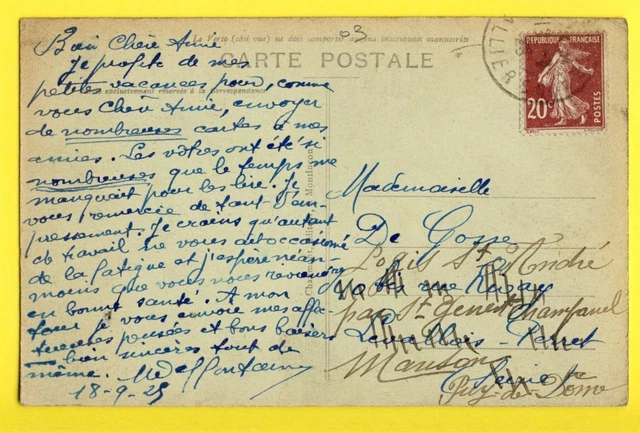 03
Le Verso (côté vue) ne doit comporter aucune inscription manuscrite
CARTE POSTALE
exclusivement réservé à la Correspondance
RÉPUBLIQUE FRANÇAISE
20c
POSTES
ALLIER
Bien Chère Amie
Je profite de mes
petites vacances pour, comme
vous Chère Amie, envoyer
de nombreuses cartes à mes
amies. Les vôtres ont été si
nombreuses que le temps me
manquait pour les lire. Je
vous remercie de tant d'em-
pressement. Je crains qu'autant
de travail ne vous ait occasionné
de la fatigue et j'espère néan-
moins que vous nous reviendrez
en bonne santé. A mon
tour je vous envoie mes affec-
tueuses pensées et bons baisers
bien sincères tout de
même.
18-9-25
Mademoiselle
De Gosse
Logis St André
rue
par St Genest Champanel
Levallois-Perret
Seine
Puy-de-Dôme